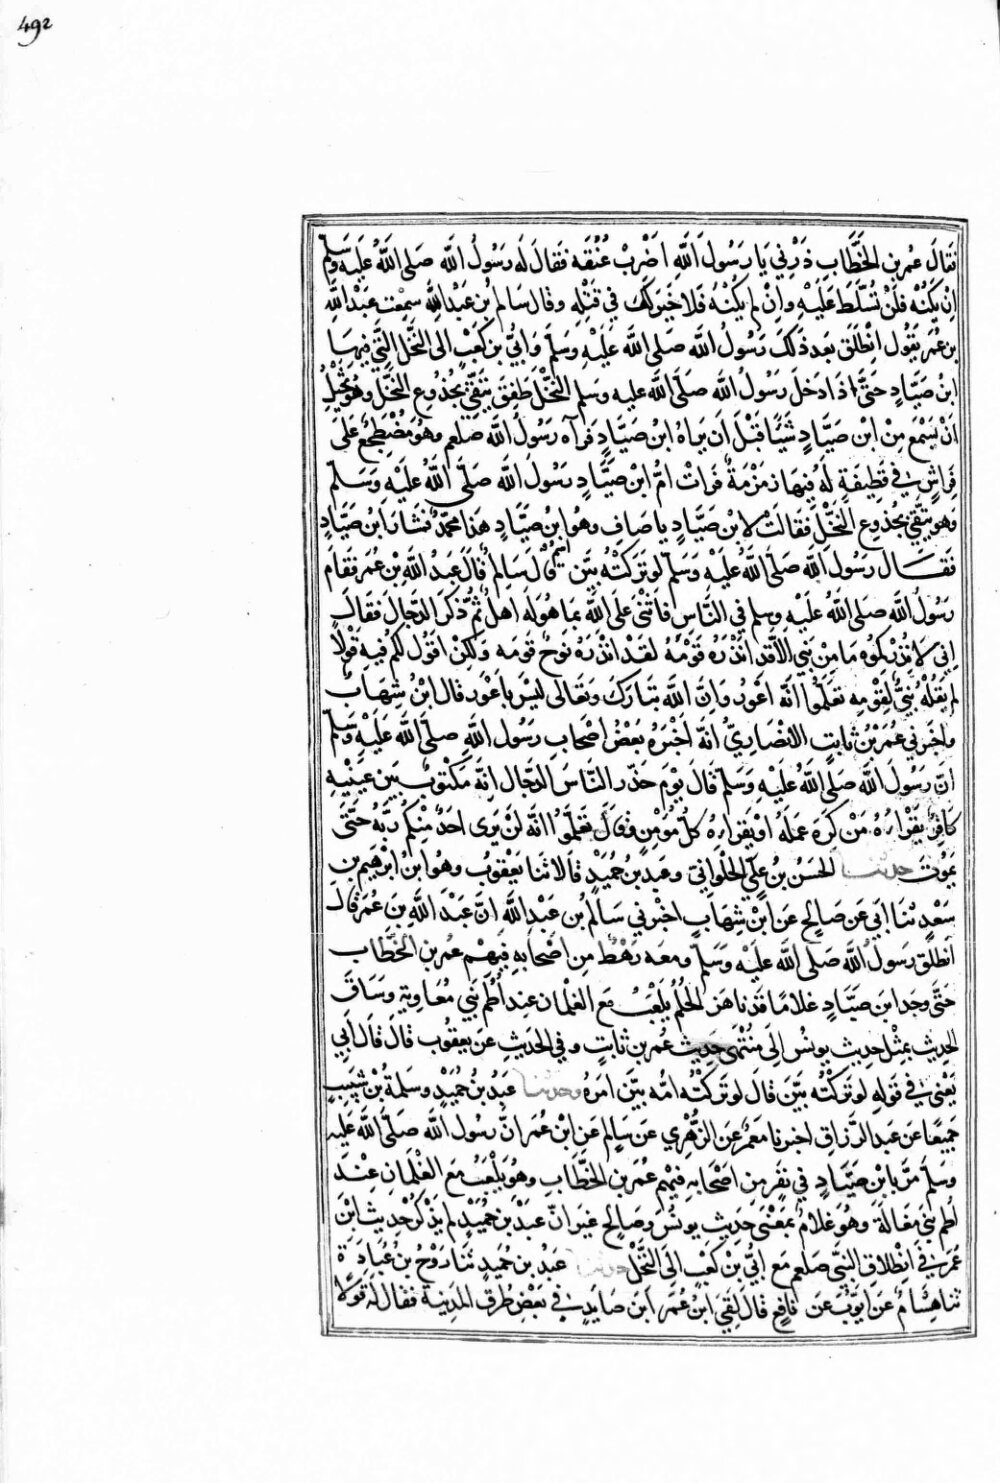 492
فقال عمر بن الخطاب ذرني يا رسول الله اضرب عنقه فقال له رسول الله صلى الله عليه وسلم
ان يكنه فلن تسلط عليه وان لم يكنه فلا خير لك في قتله وقال سالم بن عبد الله سمعت عبد الله
بن عمر يقول انطلق بعد ذلك رسول الله صلى الله عليه وسلم وابي بن كعب الى النخل التي فيها
ابن صياد حتى اذا دخل رسول الله صلى الله عليه وسلم النخل طفق يتقي بجذوع النخل وهو يختل
ان يسمع من ابن صياد شيئا قبل ان يراه ابن صياد فرآه رسول الله صلعم وهو مضطجع على
فراش في قطيفة له فيها زمزمة فرات ام ابن صياد رسول الله صلى الله عليه وسلم
وهو يتقي بجذوع النخل فقالت لابن صياد يا صاف وهو ابن صياد هذا محمد فثار ابن صياد
فقال رسول الله صلى الله عليه وسلم لو تركته بين قال سالم قال عبد الله بن عمر فقام
رسول الله صلى الله عليه وسلم في الناس فاثنى على الله بما هو له اهل ثم ذكر الدجال فقال
اني لانذركموه ما من نبي الا قد انذره قومه لقد انذره نوح قومه ولكن اقول لكم فيه قولا
لم يقله نبي لقومه تعلموا انه اعور وان الله تبارك وتعالى ليس باعور قال ابن شهاب
واخبرني عمر بن ثابت الانصاري انه اخبره بعض اصحاب رسول الله صلى الله عليه وسلم
ان رسول الله صلى الله عليه وسلم قال يوم حذر الناس الدجال انه مكتوب بين عينيه
كافر يقراه من كره عمله او يقراه كل مومن وقال تعلموا انه لن يرى احد منكم ربه حتى
يموت حدثنا الحسن بن علي الحلواني وعبد بن حميد قالا ثنا يعقوب وهو ابن ابرهيم بن
سعد ثنا ابي عن صالح عن ابن شهاب اخبرني سالم بن عبد الله ان عبد الله بن عمر قال
انطلق رسول الله صلى الله عليه وسلم ومعه رهط من اصحابه فيهم عمر بن الخطاب
حتى وجد ابن صياد غلاما قد ناهز الحلم يلعب مع الغلمان عند اطم بني معاوية وساق
الحديث بمثل حديث يونس الى منتهى حديث عمر بن ثابت وفي الحديث عن يعقوب قال قال ابي
يعني في قوله لو تركته بين قال لو تركته امه بين امره وحدثنا عبد بن حميد وسلمة بن شبيب
جميعا عن عبد الرزاق اخبرنا معمر عن الزهري عن سالم عن ابن عمر ان رسول الله صلى الله عليه
وسلم مر بابن صياد في نفر من اصحابه فيهم عمر بن الخطاب وهو يلعب مع الغلمان عند
اطم بني مغالة وهو غلام بمعنى حديث يونس وصالح غير ان عبد بن حميد لم يذكر حديث ابن
عمر في انطلاق النبي صلعم مع ابي بن كعب الى النخل حدثنا عبد بن حميد ثنا روح بن عبادة
ثنا هشام عن ايوب عن نافع قال لقي ابن عمر ابن صايد في بعض طرق المدينة فقال له قولا